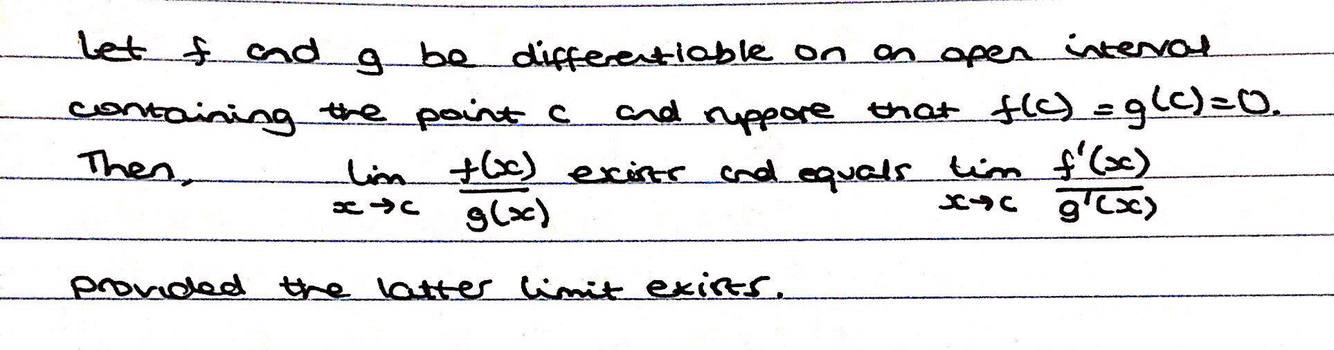 Let f and g be differentiable on an open interval
containing the point c and suppose that f(c) = g(c) = 0.
Then, lim x→c f(x)/g(x) exists and equals lim x→c f'(x)/g'(x)
provided the latter limit exists.